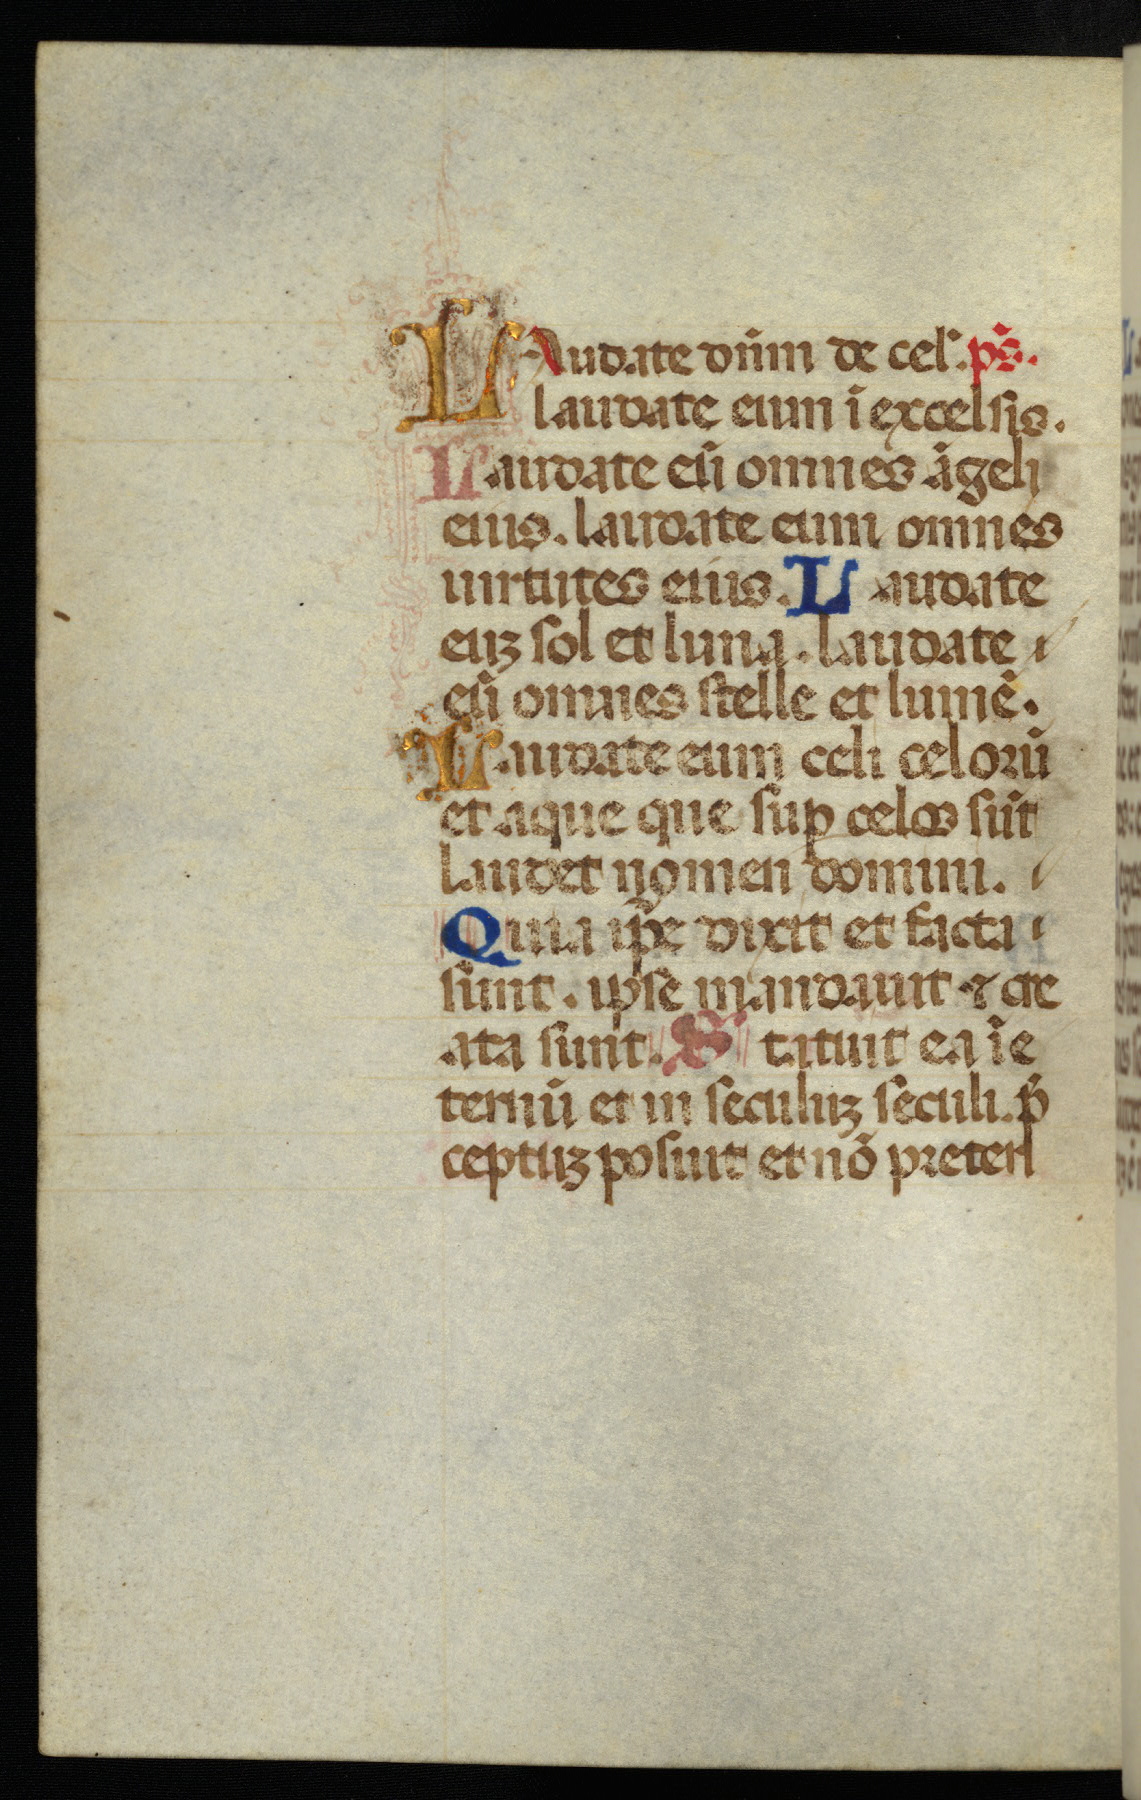 Laudate dūm de cel. ps.
laudate eum ī excelsis.
Laudate eū omnes āgeli
eius. laudate eum omnes
uirtutes eius. Laudate
euꝫ sol et luna. laudate
eū omnes stelle et lumē.
Laudate eum celi celorū
et aque que sup celos sūt
laudēt nomen domini.
Quia ip̄e dixit et facta
sunt. ipse mandauit ⁊ cre
ata sunt. Statuit ea ī e
ternū et in seculuꝫ seculi. p̄
ceptuꝫ posuit et nō preteri